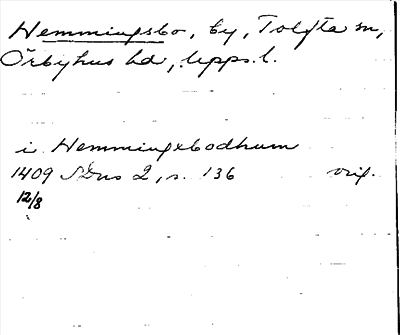 Hemmingsbo, by, Tolfta sn,
Örbyhus hd, Upps. l.
i Hemmingxbodhum
1409 SDns 2, s. 136 orig.
12/8